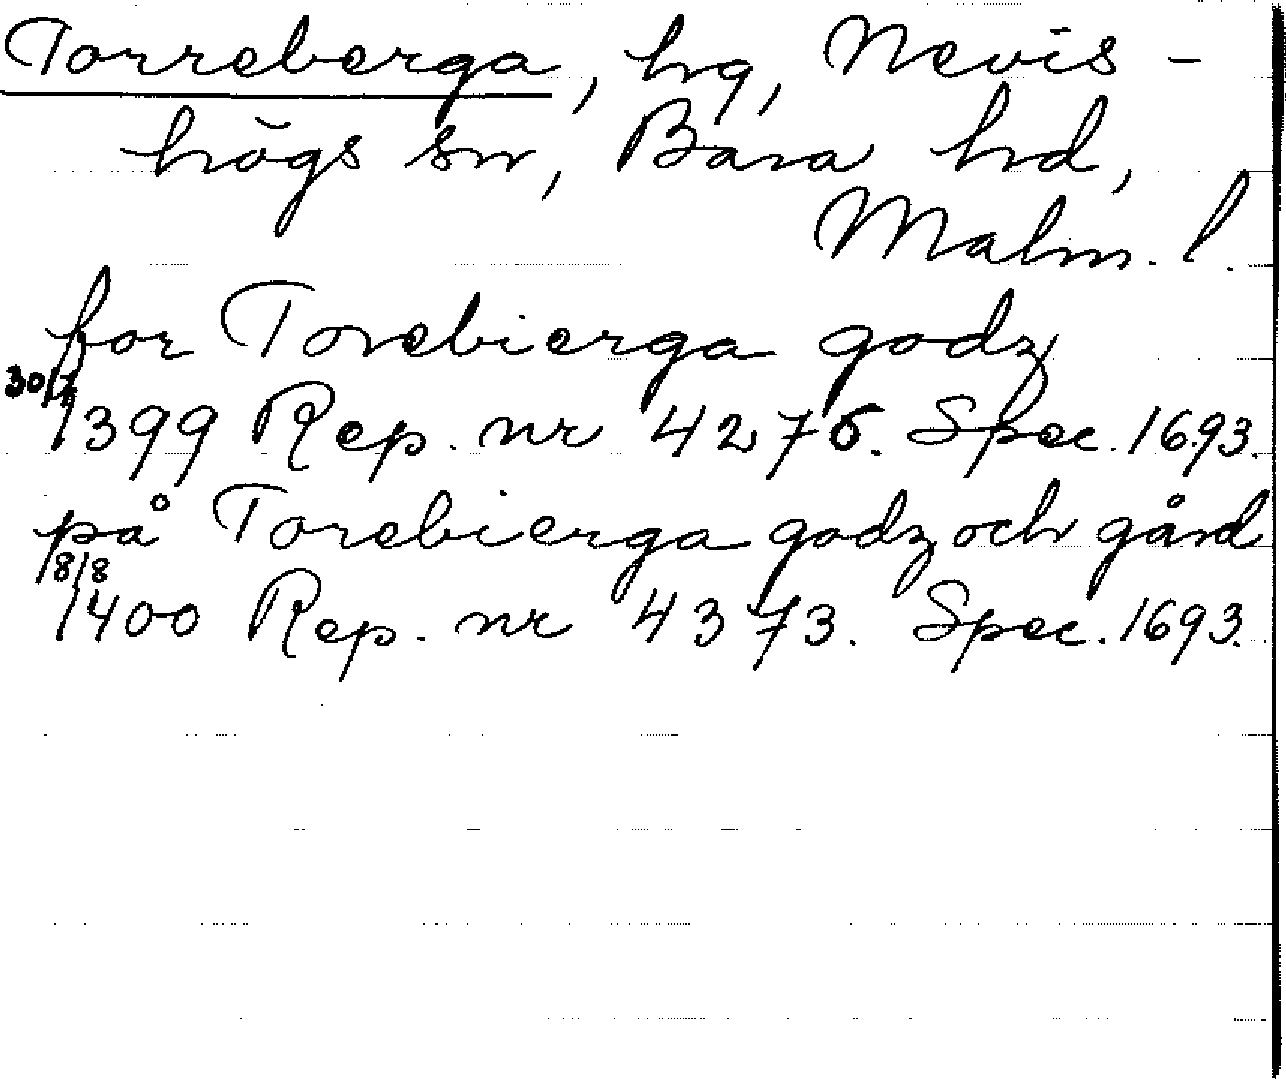 Torreberga, hg, Nevis-
högs sn, Bara hd,
Malm. l.
for Torebierga godz
30/7 1399 Rep. nr 4276. Spec. 1693.
på Torebierga godz och gård
18/8 1400 Rep. nr 4373. Spec. 1693.